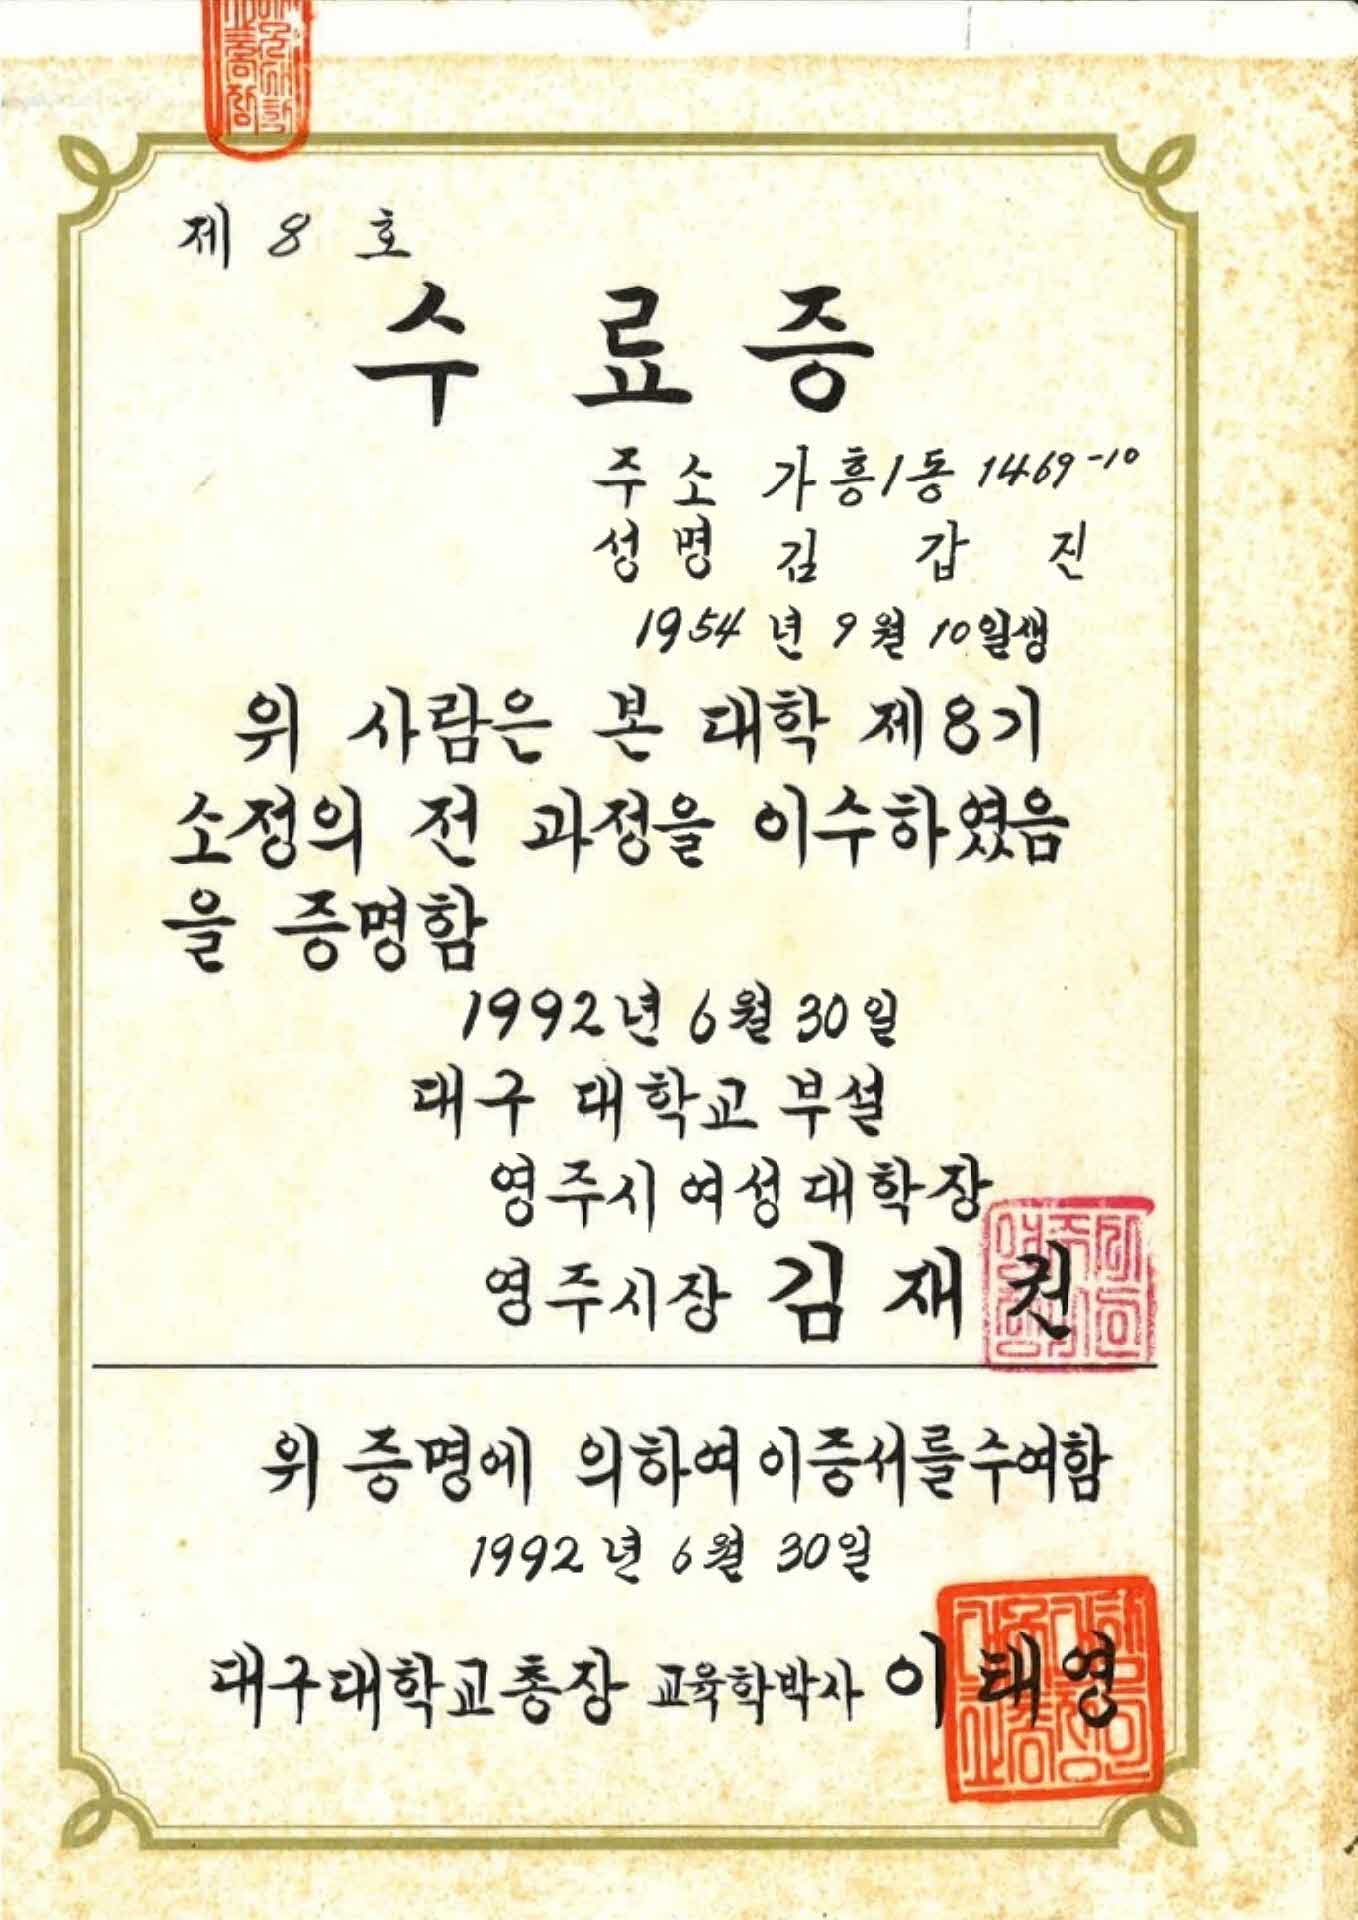 제 8 호
수 료 증
주 소 가흥1동 1469-10
성 명 김 갑 진
1954 년 9 월 10 일생
위 사람은 본 대학 제8기
소정의 전 과정을 이수하였음
을 증명함
1992년 6월 30일
대구 대학교 부설
영주시 여성대학장
영주시장 김 재 권
위 증명에 의하여 이증서를수여함
1992년 6월 30일
대구대학교총장 교육학박사 이태영